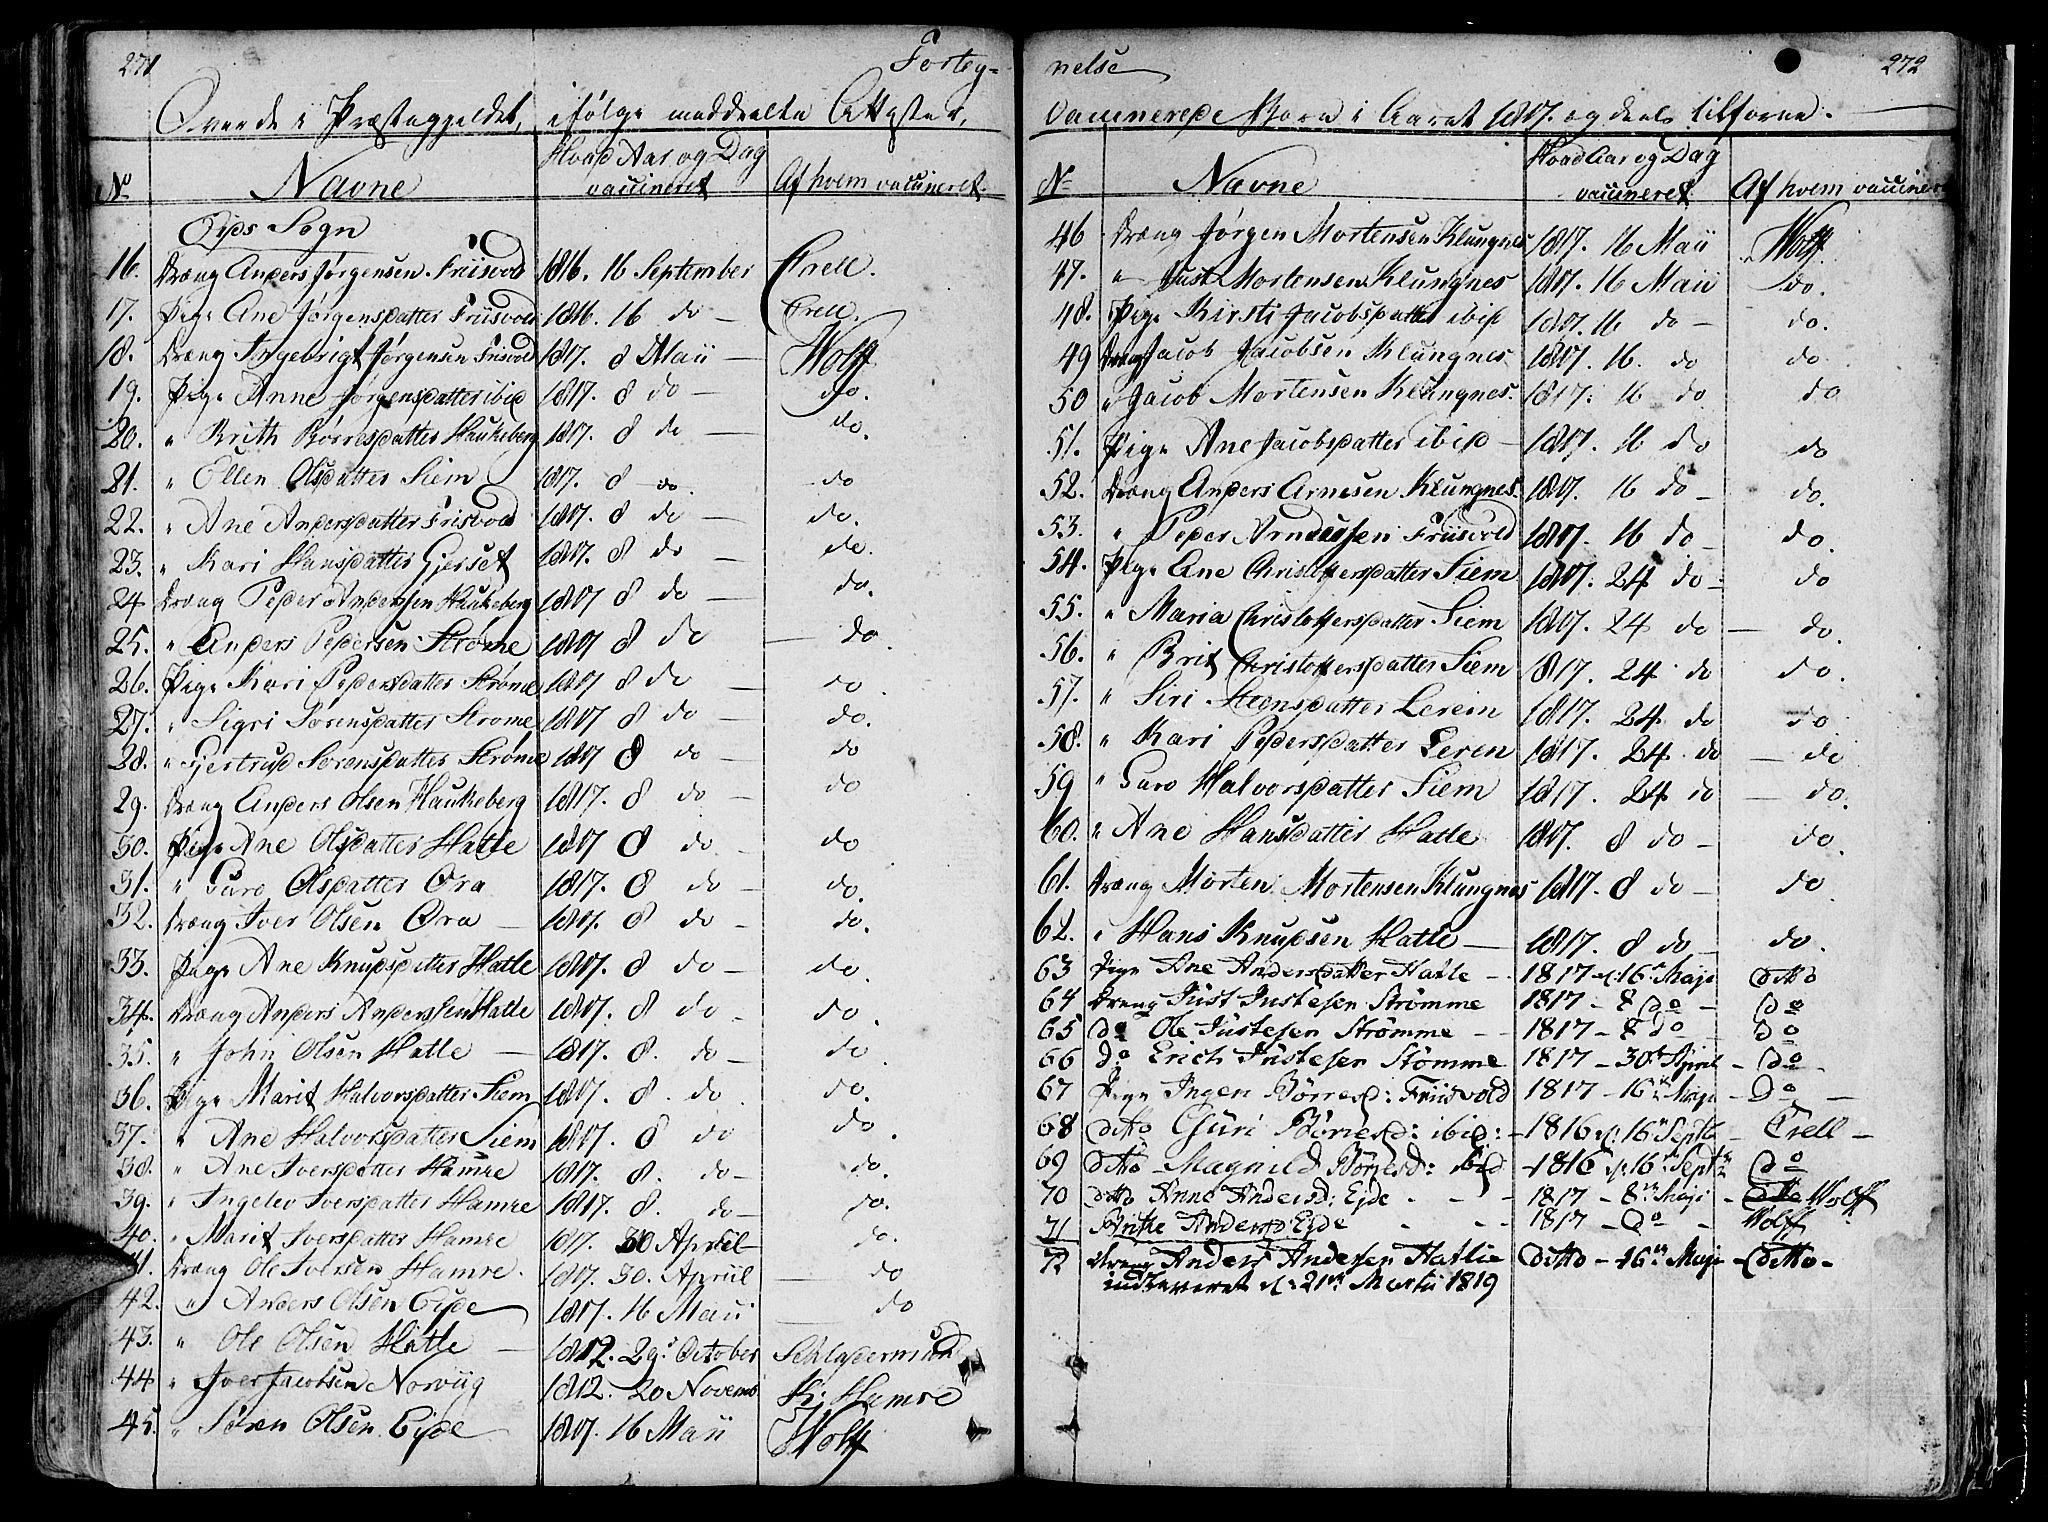 271 Forteg-
Over de i Præstegjeldet, ifølge meddeelte Attester,
No Navne Hvad Aar og Dag vaccineret Af hvem vaccineret.
Eids Sogn
16. Dræng Anders Jørgensen Friisvold 1816. 16 September Crell.
17. Pige Ane Jørgensdatter Friisvold 1816. 16 do — Crell.
18. Dræng Ingebrigt Jørgensen Frisvold 1817. 8 Maii — Wolff
19. Pige Anne Jørgensdatter ibid 1817. 8 do — do.
20. " Brith Børresdatter Haukeberg 1817. 8 do — do.
21. " Ellen Olsdatter Siem 1817. 8 — do. — do
22. " Ane Andersdatter Frisvold 1817. 8 do — do.
23. " Kari Hansdatter Gjerset 1817. 8 do — do.
24 Dræng Peder Anderssen Haukeberg 1817 8 do — do.
25. " Anders Pedersen Strøme 1817 8 do — do.
26. Pige Kari Pedersdatter Strøme 1817 8 do — do.
27. " Sigri Sørensdatter Strøme 1817 8 do — do.
28. " Gjertrud Sørensdatter Strøme 1817 8 do — do
29. Dræng Anders Olsen Haukeberg 1817. 8 do — do
30. Pige Ane Olsdatter Hatle 1817 8 do — do
31. " Guro Olsdatter Øra 1817. 8 do — do.
32. Dræng Iver Olsen Øra — 1817. 8 do — do.
33. Pige Ane Knudsdatter Hatle 1817. 8 do — do
34. Dræng Anders Anderssen Hatle 1817. 8 do — do.
35. " John Olsen Hatle — 1817. 8. do — do.
36. Pige Marit Halvorsdatter Siem 1817. 8. do do.
37. " Ane Halvorsdatter Siem 1817. 8 do do.
38. " Ane Iversdatter Hamre 1817. 8. do — do.
39. " Ingelev Iversdatter Hamre 1817. 8. do — do.
40. " Marit Iversdatter Hamre 1817. 30 April — do.
41. Dræng Ole Iversen Hamre. 1817. 30. Apriil — do
42. " Anders Olsen Eide 1817. 16 Maii — do
43. " Ole Olsen Hatle — 1812. 29. October Schladermund
44 " Iver Jacobsen Norviig 1812. 20 Novemb K: Hamre
45. " Søren Olsen Eide 1817. 16 Maii Wolff
nelse 272
vaccinerede Børn i Aaret 1817. og deels tilforne.
No Navne Hvad Aar og Dag vaccineret Af hvem vacciner
46 Dræng Jørgen Mortensen Klungnes 1817. 16 Maii Wolff
47. " Just Mortensen Klungnes 1817. 16 Maii do.
48. Pige Kirsti Jacobsdatter ibid 1817. 16 do — do.
49 Dræng Jacob Jacobsen Klungnes 1817. 16. do do
50 " Jacob Mortensen Klungnes. 1817. 16 do do
51. Pige Ane Jacobsdatter ibid — 1817. 16 do do
52. Dræng Anders Arnesen Klungnes. 1817. 16 do — do.
53. " Peder Arnessen Friisvold 1817. 16 do — do.
54. Pige Ane Christoffersdatter Siem 1817. 24 do — do
55. " Maria Christoffersdatter Siem 1817. 24 do — do.
56. " Brit Christoffersdatter Siem 1817. 24. do do.
57. " Siri Steensdatter Lerein 1817. 24 do do
58. " Kari Pedersdatter Leren 1817. 24. do — do
59 " Guro Halvorsdatter Siem 1817. 24 do — do.
60. " Ane Hansdatter Hatle 1817. 8 do — do.
61. Dræng Morten Mortensen Klungnes 1817. 8 do — do
62. " Hans Knudsen Hatle — 1817. 8 do — do.
63 Pige Ane Andersdatter Hatle — 1817 d. 16de Maji ditto
64 Dreng Just Justesen Strømme 1817 — 8 do — do
65 do Ole Justesen Strømme — 1817 — 8 do — do
66 do Erich Justesen Stömme 1817 — 30te April — do
67 Pige Ingen Börresd: Friisvold 1817 — 16de Maji — do —
68 ditto Guri Börresd: ibid: — 1816 d: 16de Septb — Crell —
69 ditto Magnild Börresd: ibid — 1816 d: 16de Septbr do
70 ditto Anne Andersd: Eide — 1817 — 8de Maji — Wolff
71 Brithe Andersd: Eide — 1817 — do — Wolff
72 Dreng Anders Andersen Hatlie ditto — 16de Maji — ditto —
indleveret d: 21de Martii 1819